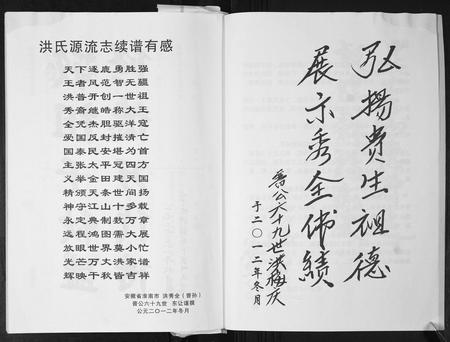 洪氏源流志续谱有感
天下逐鹿勇胜强
王者风范智无疆
洪普开创一世祖
秀裔继皓称大王
全凭杰胆驱洋寇
爱国反封摧清亡
国泰民安堪为首
主张太平冠四方
义举金田建天国
精颁天泰世间扬
神守江山十万载
永定典制数多章
远程鸿图需大展
放眼世界莫小忙
光芒万丈洪家谱
辉映千秋皆吉祥
安徽省淮南市 洪秀全（晋孙）
晋公六十九世 东让谨撰
公元二〇一二年冬月
弘揚贵生祖德
展示秀全伟績
晋公六十九世洪梅庆
于二〇一二年冬月